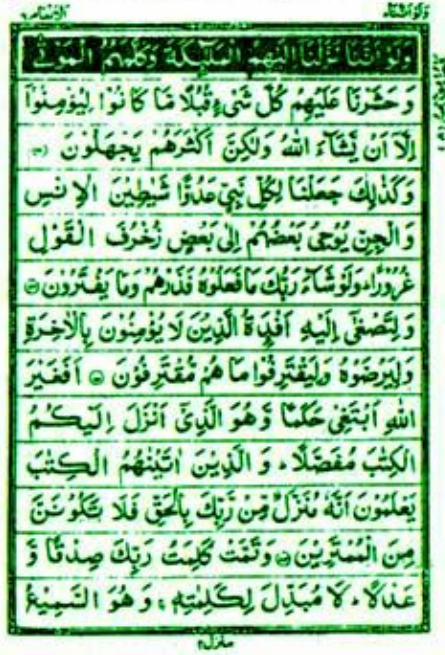 ولو اننا ٨
الانعام ٦
وَلَوْ اَنَّنَا نَزَّلْنَاۤ اِلَيْهِمُ الْمَلٰٓئِكَةَ وَكَلَّمَهُمُ الْمَوْتٰى
وَحَشَرْنَا عَلَيْهِمْ كُلَّ شَىْءٍ قُبُلًا مَّا كَانُوْا لِيُؤْمِنُوْۤا
اِلَّاۤ اَنْ يَّشَآءَ اللّٰهُ وَلٰكِنَّ اَكْثَرَهُمْ يَجْهَلُوْنَ
وَكَذٰلِكَ جَعَلْنَا لِكُلِّ نَبِىٍّ عَدُوًّا شَيٰطِيْنَ الْاِنْسِ
وَالْجِنِّ يُوْحِىْ بَعْضُهُمْ اِلٰى بَعْضٍ زُخْرُفَ الْقَوْلِ
غُرُوْرًا ؕ وَلَوْ شَآءَ رَبُّكَ مَا فَعَلُوْهُ فَذَرْهُمْ وَمَا يَفْتَرُوْنَ
وَلِتَصْغٰۤى اِلَيْهِ اَفْـِٕدَةُ الَّذِيْنَ لَا يُؤْمِنُوْنَ بِالْاٰخِرَةِ
وَلِيَرْضَوْهُ وَلِيَقْتَرِفُوْا مَا هُمْ مُّقْتَرِفُوْنَ اَفَغَيْرَ
اللّٰهِ اَبْتَغِىْ حَكَمًا وَّهُوَ الَّذِىْۤ اَنْزَلَ اِلَيْكُمُ
الْكِتٰبَ مُفَصَّلًا ؕ وَالَّذِيْنَ اٰتَيْنٰهُمُ الْكِتٰبَ
يَعْلَمُوْنَ اَنَّهٗ مُنَزَّلٌ مِّنْ رَّبِّكَ بِالْحَقِّ فَلَا تَكُوْنَنَّ
مِنَ الْمُمْتَرِيْنَ وَتَمَّتْ كَلِمَتُ رَبِّكَ صِدْقًا وَّ
عَدْلًا ؕ لَا مُبَدِّلَ لِكَلِمٰتِهٖ ۚ وَهُوَ السَّمِيْعُ
منزل ٢